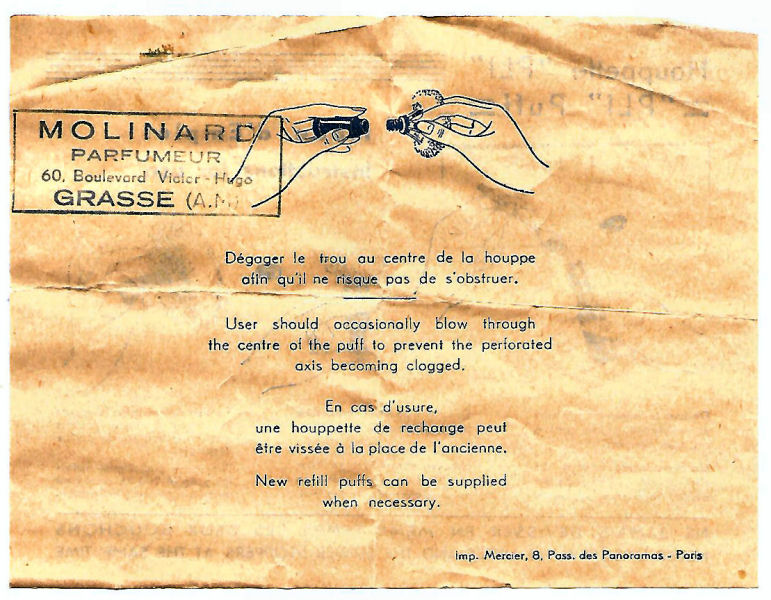 MOLINARD
PARFUMEUR
60, Boulevard Victor-Hugo
GRASSE (A.M)
Dégager le trou au centre de la houppe
afin qu'il ne risque pas de s'obstruer.
User should occasionally blow through
the centre of the puff to prevent the perforated
axis becoming clogged.
En cas d'usure,
une houppette de rechange peut
être vissée à la place de l'ancienne.
New refill puffs can be supplied
when necessary.
Imp. Mercier, 8, Pass. des Panoramas - Paris